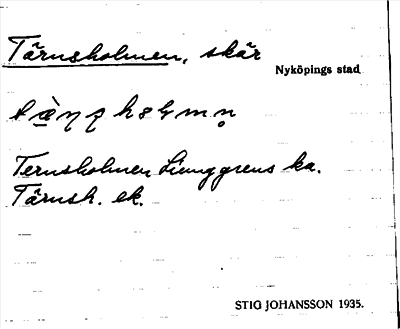 Tärnsholmen, skär
Nyköpings stad
Ternsholmen Ljunggrens ka.
Tärnsh. ek.
STIG JOHANSSON 1935.